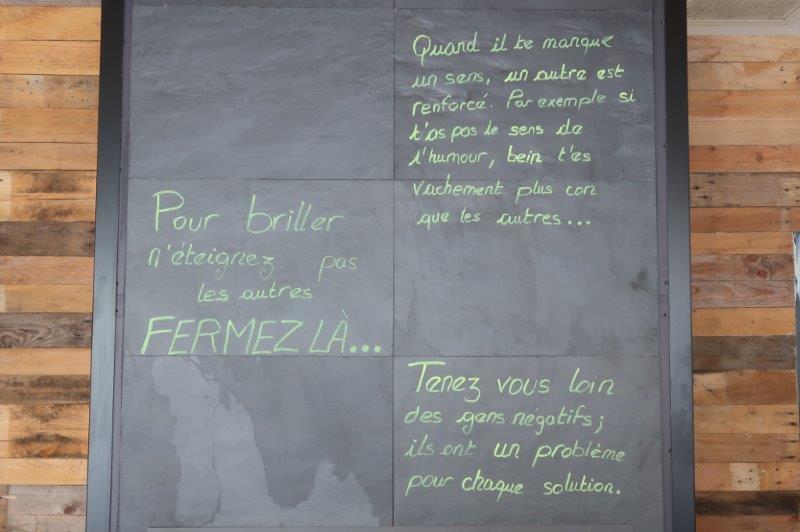 Quand il te manque
un sens, un autre est
renforcé. Par exemple si
t'as pas le sens de
l'humour, bein t'es
vachement plus con
que les autres...
Pour briller
n'éteignez pas
les autres
FERMEZ LÀ...
Tenez vous loin
des gens négatifs;
ils ont un problème
pour chaque solution.